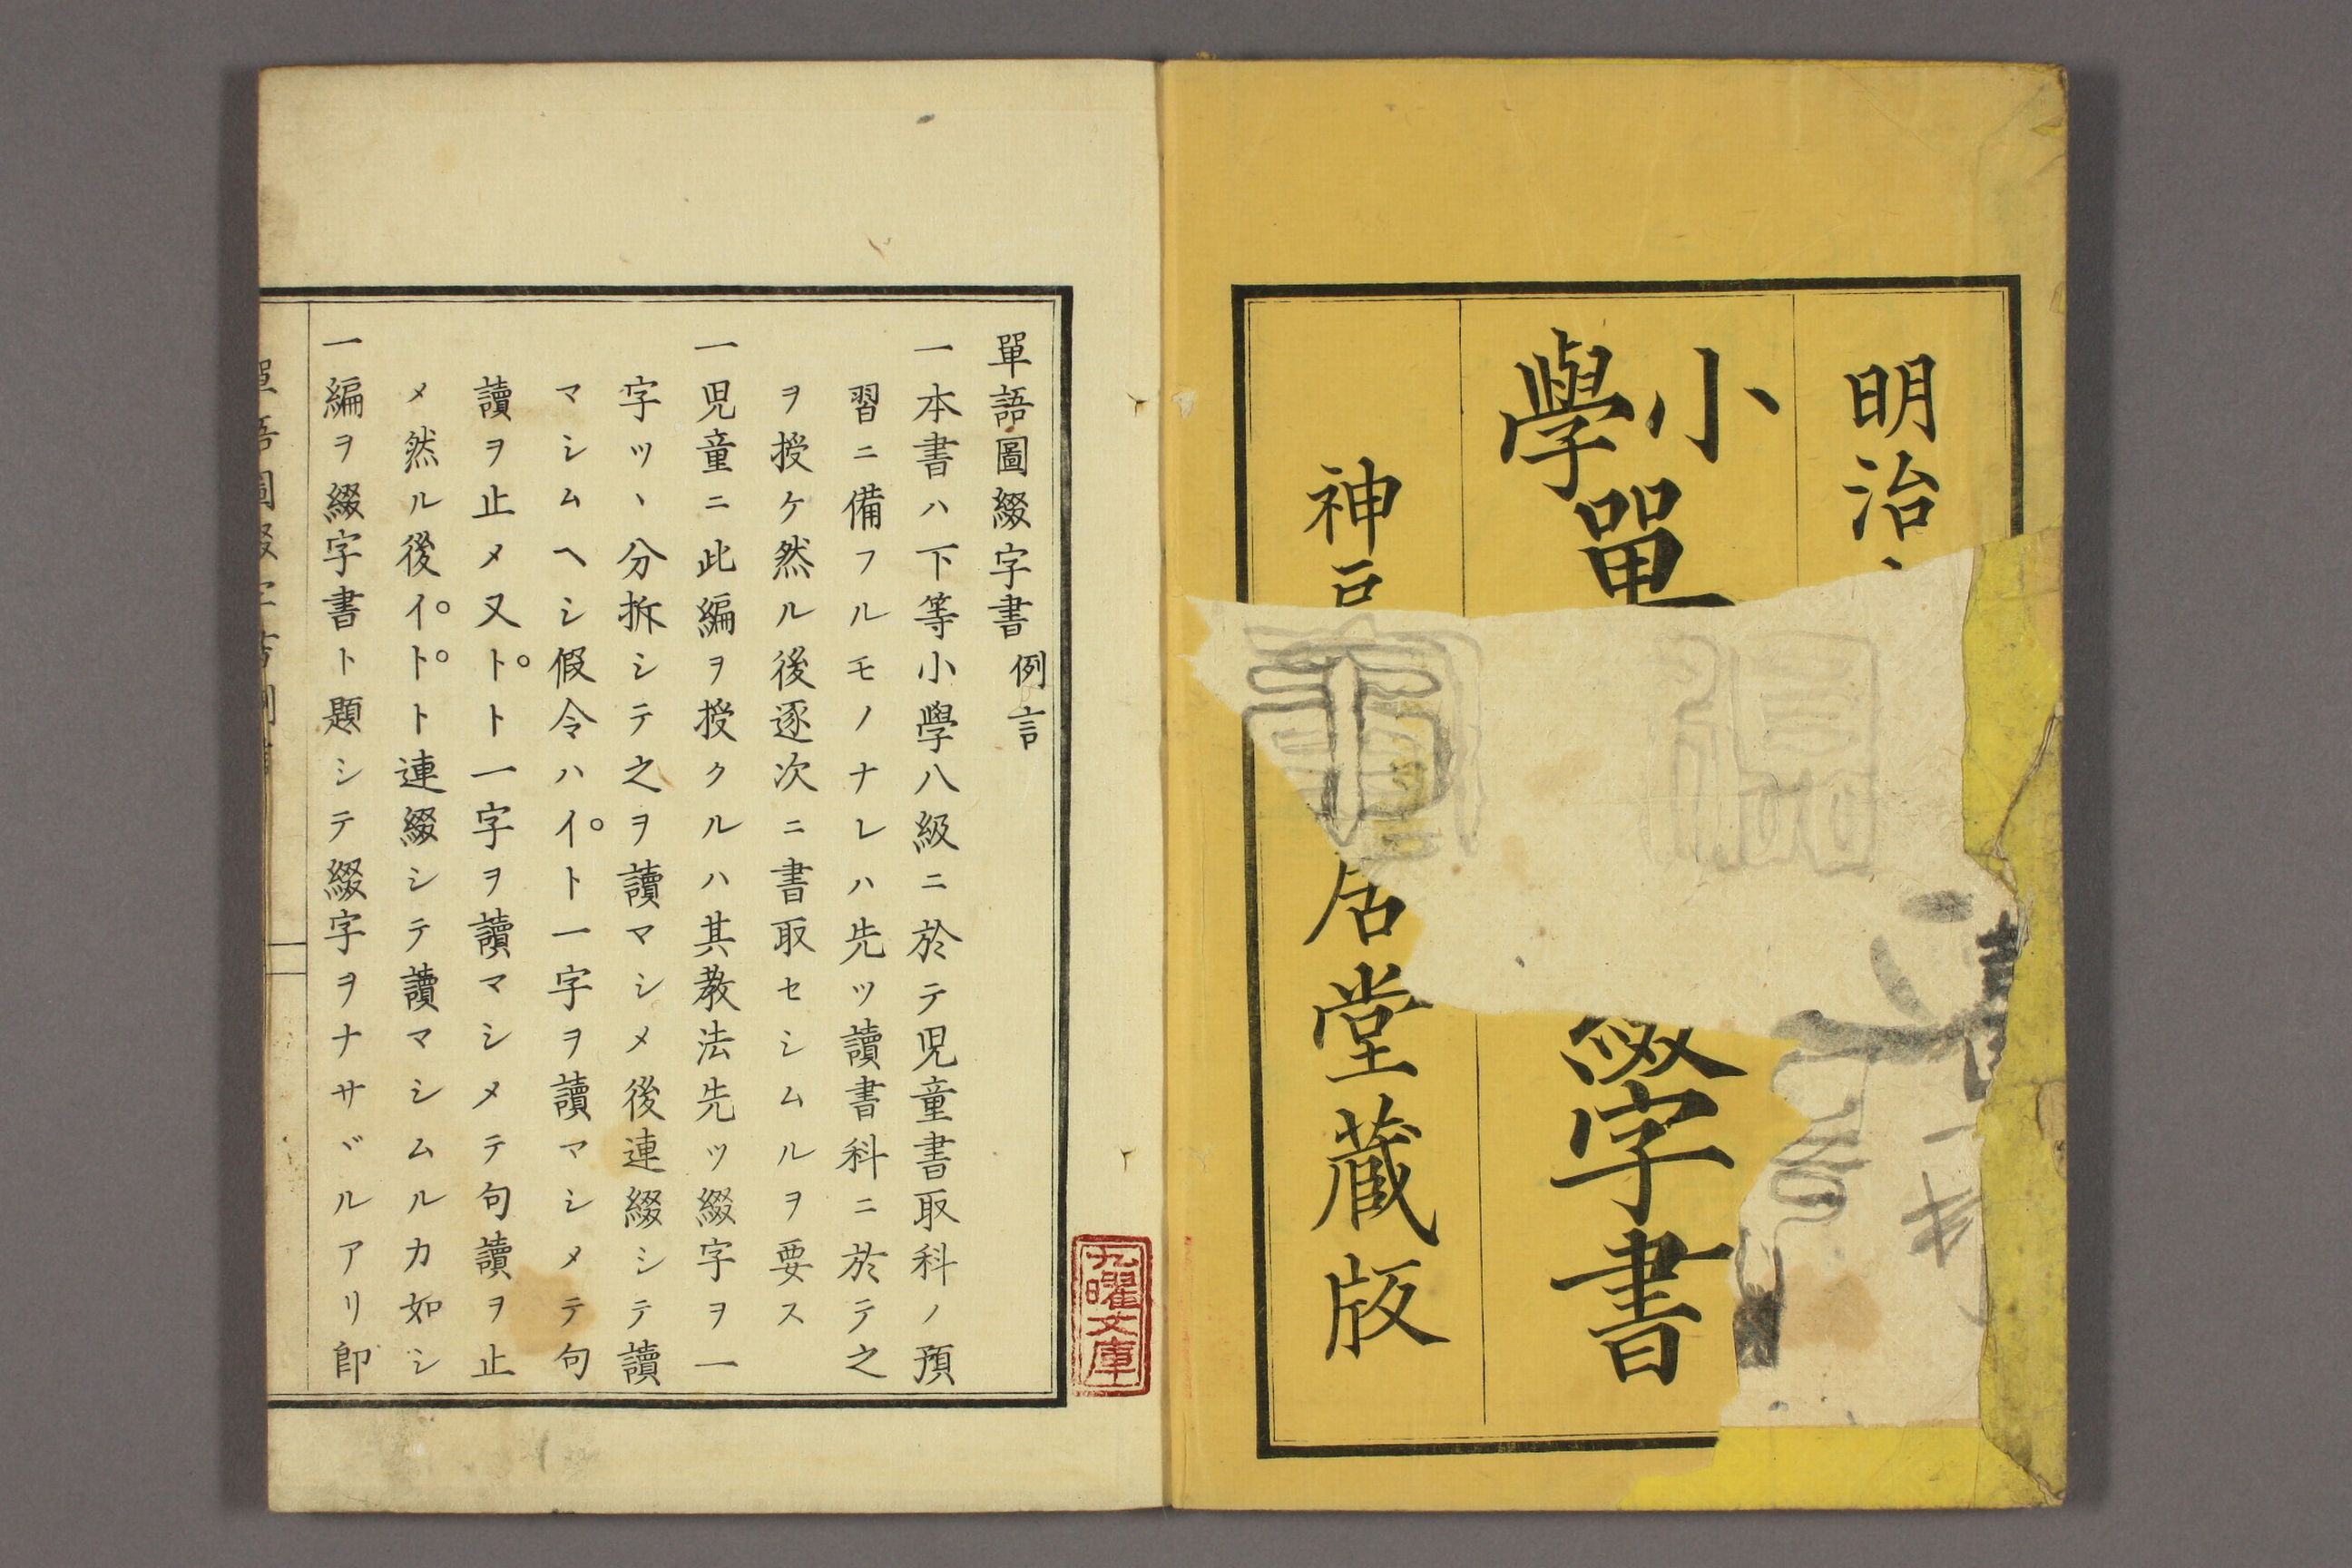 明治
小學單
綴字書
神戸
居堂蔵版
單語圖綴字書例言
一本書ハ下等小學八級ニ於テ児童書取科ノ預
習ニ備フルモノナレハ先ツ讀書科ニ於テ之
ヲ授ケ然ル後逐次ニ書取セシムルヲ要ス
一児童ニ此編ヲ授クルハ其教法先ツ綴字ヲ一
字ツヽ分拆シテ之ヲ讀マシメ後連綴シテ讀
マシムヘシ假令ハイ。ト一字ヲ讀マシメテ句
讀ヲ止メ又ト。ト一字ヲ讀マシメテ句讀ヲ止
メ然ル後イ。ト。ト連綴シテ讀マシムルカ如シ
一編ヲ綴字書ト題シテ綴字ヲナサヾルアリ即
九曜文庫